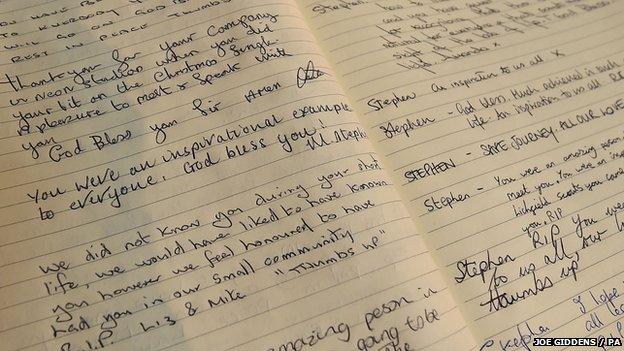 WILL GO ON! GOD B
REST IN PEACE THUMBS
Thank you for your Company
in neon Studios when you did
your bit on the Christmas Single
a pleasure to meet & speak with
you God Bless you Sir
You were an inspirational example
to everyone. God bless you!
We did not know you during your short
life, we would have liked to have known
you however we feel honoured to have
had you in our small community
R.I.P. Liz & Mike "THUMBS UP"
amazing person in
going to be
Stephen
Stephen An inspiration to us all x
Stephen - God bless. Much achieved in such
life. An inspiration to us all R
STEPHEN - SAFE JOURNEY. ALL OUR LOVE
Stephen - You were an amazing person
meet you. You were an insp
Lichfield scouts you
you. RIP
Stephen RIP You wer
to us all, our
thumbs up
I hope
all
JOE GIDDENS / PA